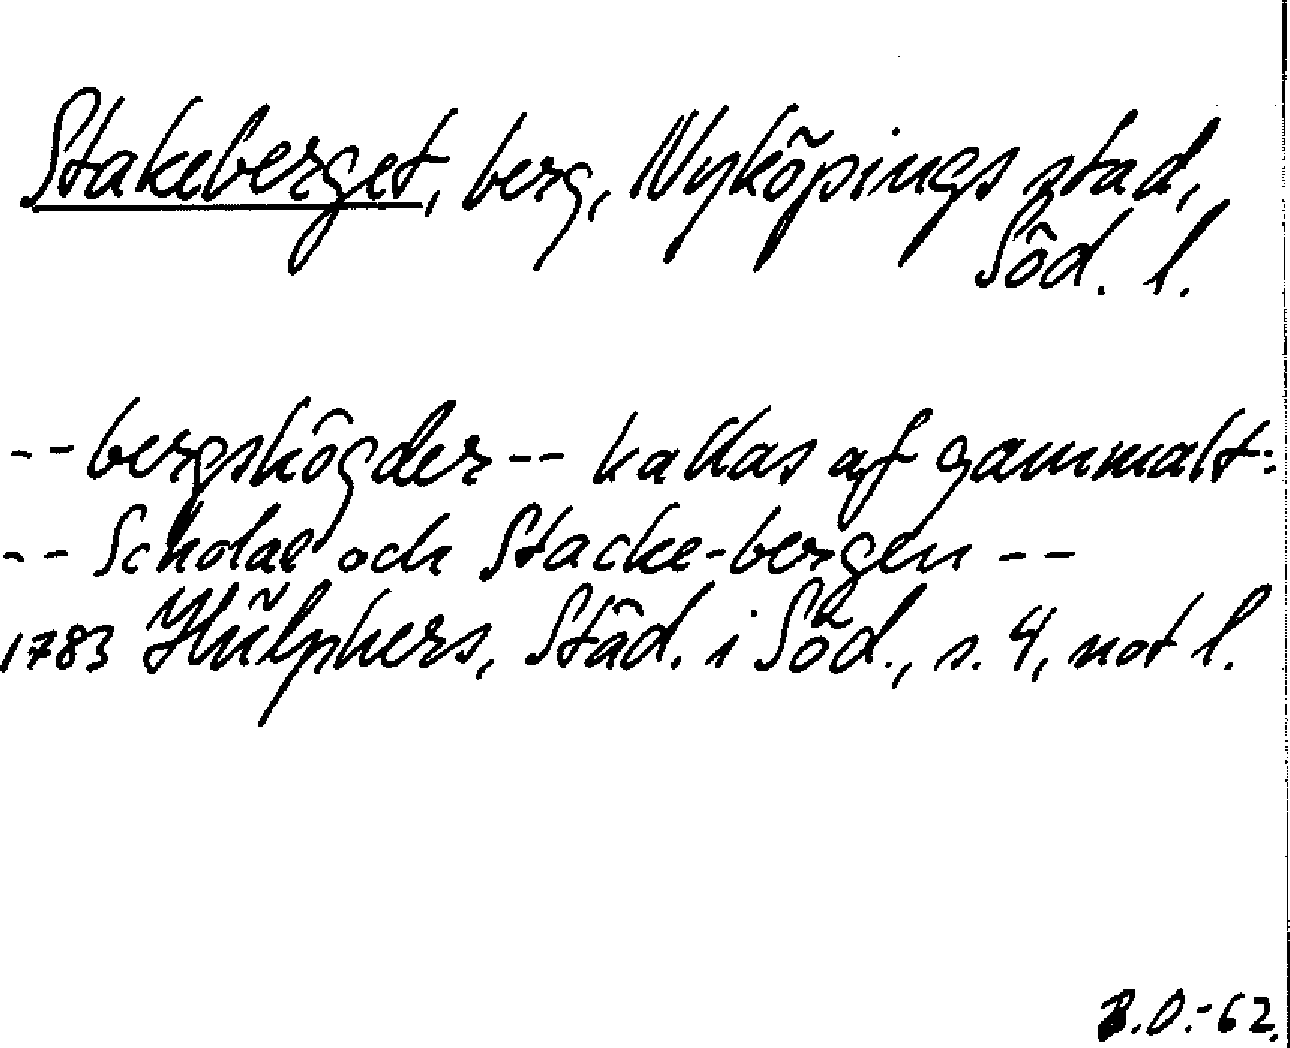 Stakeberget, berg, Nyköpings stad,
Söd. l.
-- bergshögder -- kallas af gammalt:
-- Scholae och Stacke-bergen --
1783 Hülphers, Städ. i Söd., s. 4, not l.
B.O.-62.